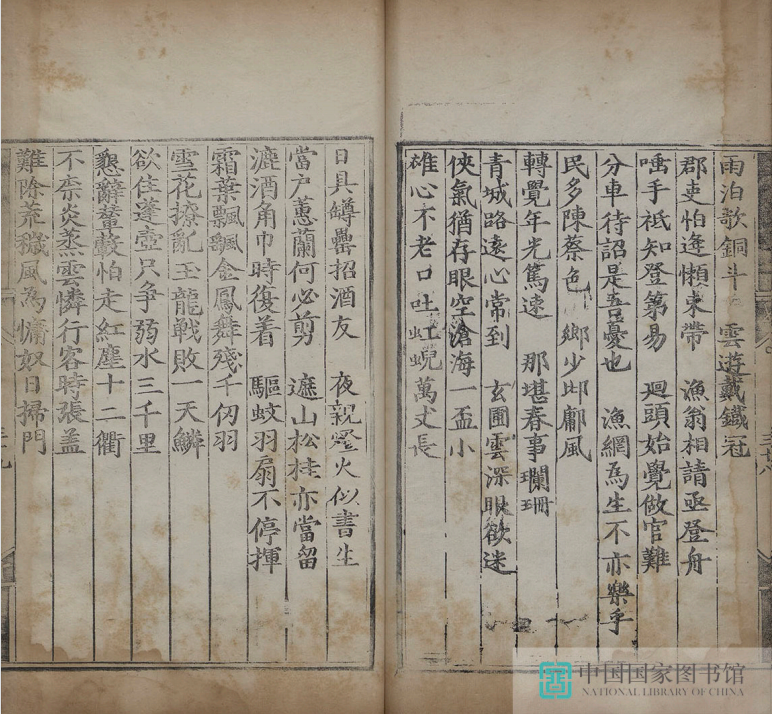 雨泊欹銅斗 雲遊戴鐵冠
郡吏怕逢懶束帶 漁翁相請亟登舟
唾手祗知登第易 廻頭始覺做官難
分車待詔是吾憂也 漁網為生不亦樂乎
民多陳蔡色 鄉少邶鄘風
轉覺年光篤速 那堪春事瓓珊
青城路遠心常到 玄圃雲深眼欲迷
俠氣猶存眼空滄海一盃小
雄心不老口吐虹蜺萬丈長
日具罇罍招酒友 夜親燈火似書生
當户蕙蘭何必剪 遮山松桂亦當留
漉酒角巾時復着 驅蚊羽扇不停揮
霜葉飄飄金鳳舞殘千仞羽
雪花撩亂玉龍戰敗一天鱗
欲住蓬壺只争弱水三千里
懇辭輦轂怕走紅塵十二衢
不柰炎蒸雲憐行客時張盖
難除荒穢風為慵奴日掃門
中国国家图书馆
NATIONAL LIBRARY OF CHINA